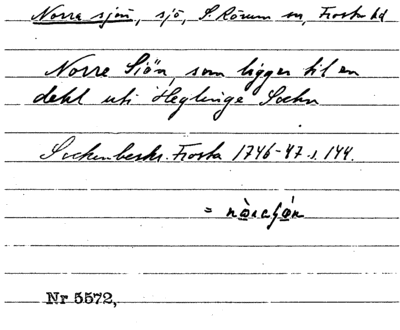 Norra sjön, sjö, S. Rörum sn, Frosta hd
Norre Siön, som ligger til en
dehl uti Heglinge Sochn
Sockenbeskr. Frosta 1746-47 s. 144.
=
Nr 5572,